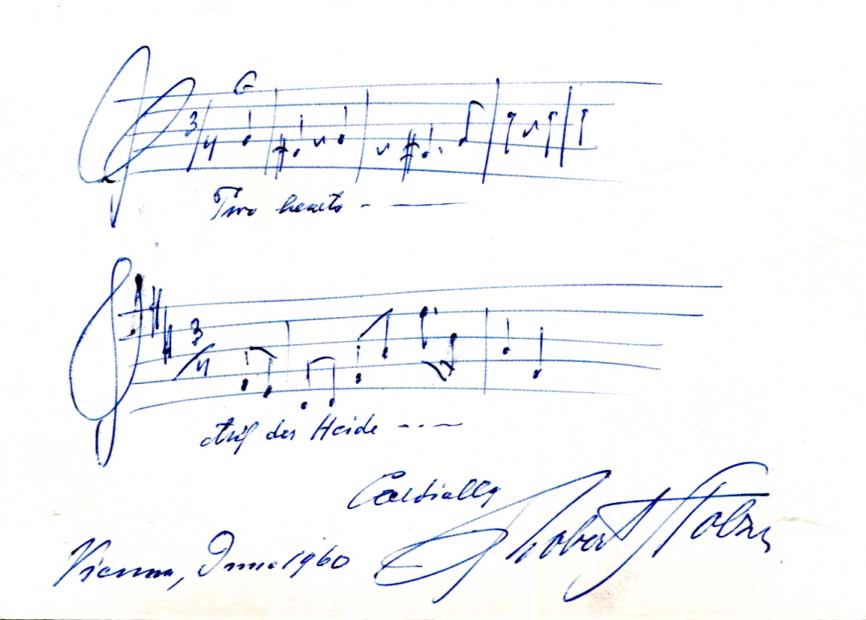 G
3/4
Two hearts - —
3/4
Auf der Heide - . - —
Cordially
Vienna, June 1960 Robert Stolz